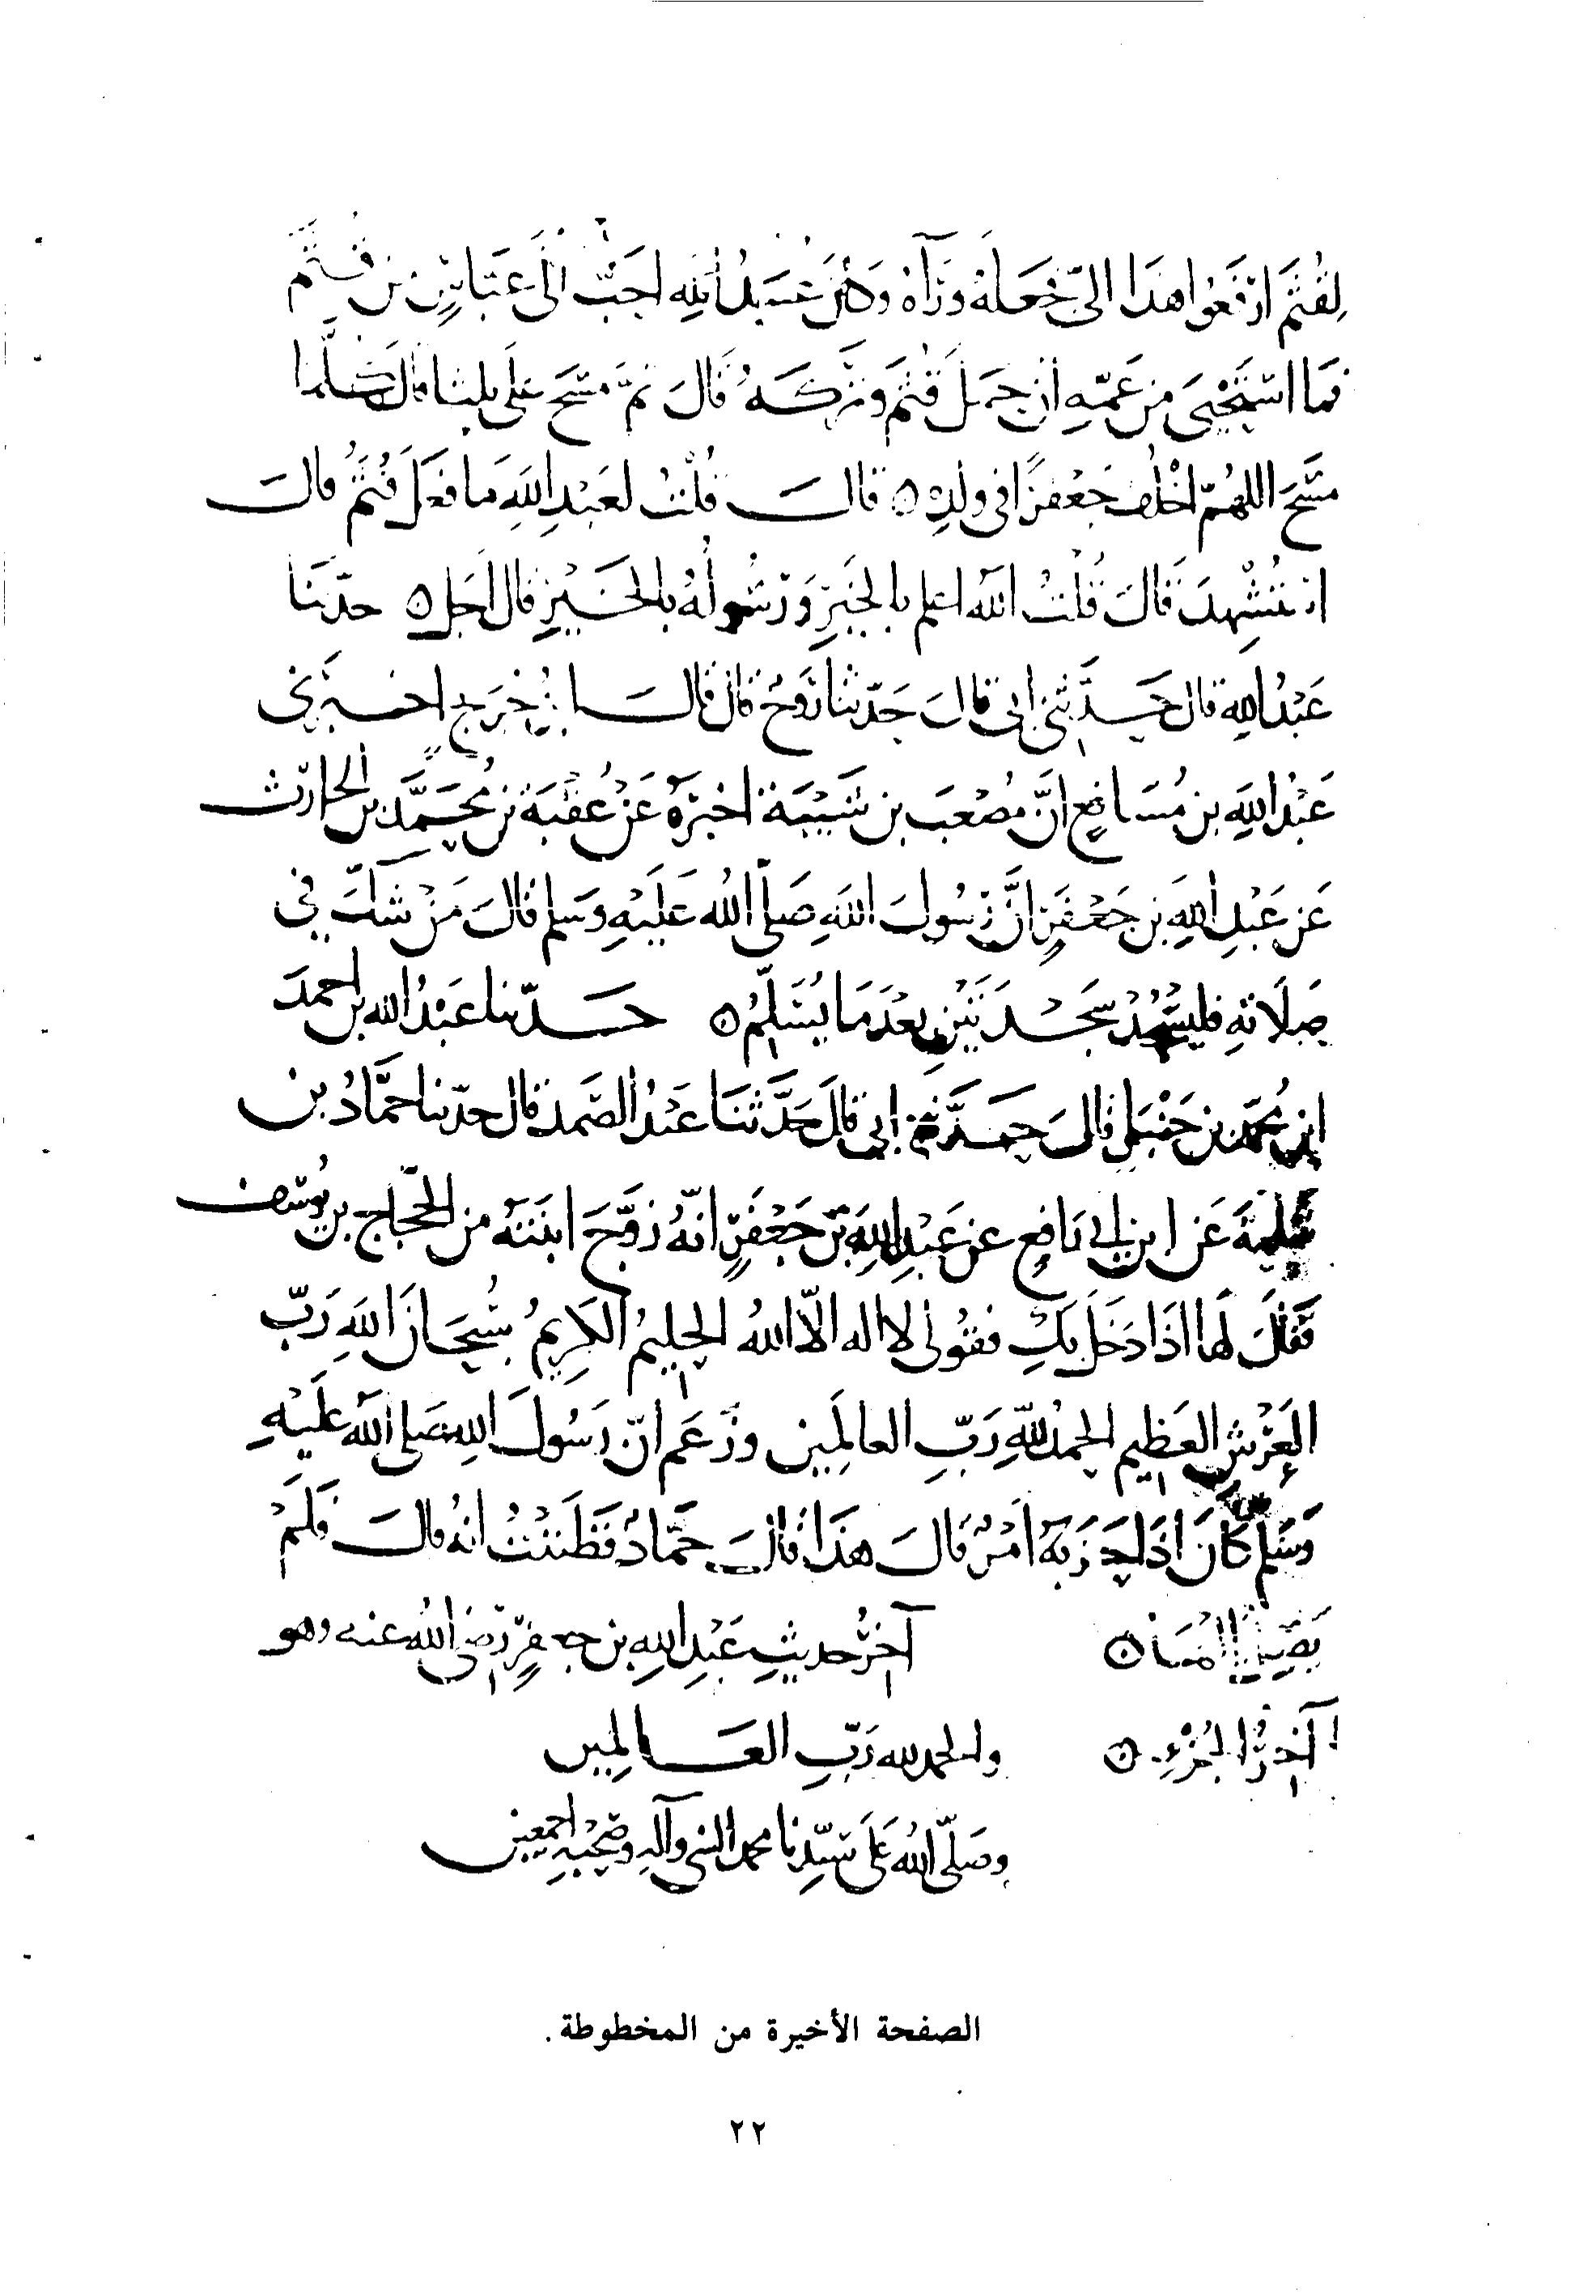 لِقُثَمَ ارْفَعُوا هَذَا الىَّ فجَعَلَهُ وَرَآهُ وَكَانَ عُبَيْدُ اللَّهِ احَبَّ الَى عَبَّاسٍ مِن قُثَمَ
فمَا اسْتَحْيَى مِن عَمِّهِ انْ حَمَلَ قُثَمَ وَتَرَكَهُ قَالَ ثمَّ مَسَحَ عَلَى رَأْسِي ثلاثًا قال كلَّمَا
مَسَحَ اللهُمَّ اخْلُف جَعْفَرًا فى ولدِهِ ٥ قالَ قُلْتُ لعَبْدِ اللَّهِ مَا فَعَلَ قُثَمُ قالَ
استُشْهِدَ قَالَ قُلْتُ اللَّهُ اعلم بالخَيْرِ وَرَسُولُهُ بالخَيْرِ قال أجَل ٥ حدّثنَا
عَبْدُ اللهِ قال حَدَّثَنِى ابى قالَ حَدّثنا رَوْحٌ قال قالَ ابنُ جُرَيجٍ اخبَرَنى
عَبْدُ اللهِ بن مُسَافِعٍ انَّ مُصْعَبَ بن شَيْبَةَ اخبَرَهُ عَنْ عُقْبَةَ بن مُحَمَّدِ بن الحارث
عَن عَبْدِ اللَّهِ بن جَعْفَرٍ انَّ رَسُولَ اللهِ صَلَّى اللهُ عَلَيْهِ وَسَلم قالَ مَنْ شَكَّ فى
صَلَاتهِ فليَسْجُدْ سَجْدَتَيْنِ بعْدَ مَا يُسَلِّمُ ٥ حَدّثنا عَبْدُ الله بن احمدَ
ابن مُحمَّد بن حَنْبَلٍ قالَ حَدَّثَنِى ابى قالَ حَدَّثَنَا عَبْدُ الصَّمَد قال حدّثنا حَمَّادُ بن
سَلمَةَ عَن ابن ابى رَافِعٍ عن عَبْدِ اللهِ بن جَعْفَرٍ انّهُ زَوَّجَ ابنَتَهُ من الحَجَّاج بن يُوسُف
فَقَالَ لَهَا اذَا دَخَلَ بكِ فقُولى لا اله الَّا اللهُ الحَلِيمُ الكَرِيمُ سُبْحَانَ اللهِ رَبِّ
العَرْشِ العَظِيم الحمدُ للهِ رَبِّ العالَمِين وزَعَم انَّ رَسُولَ اللهِ صَلى اللهُ عَلَيْهِ
وَسَلم كَانَ اذَا حَزَبَهُ امْرٌ قَالَ هَذَا قالَ حَمَّادٌ فَظَنَنْتُ انهُ قالَ فَلَمْ
يَصِلْ اليْهَا ٥ آخِرُ حديثِ عَبْدِ اللهِ بن جعفرٍ رَضى اللهُ عنه وهو
آخِرُ الجُزْءِ ٥ والحمد لله رَبِّ العَالَمِين
وصَلّى اللهُ عَلَى سَيِّدِنا محمد النبى وآلهِ وصَحْبِهِ اجمعين
الصفحة الأخيرة من المخطوطة.
٢٢